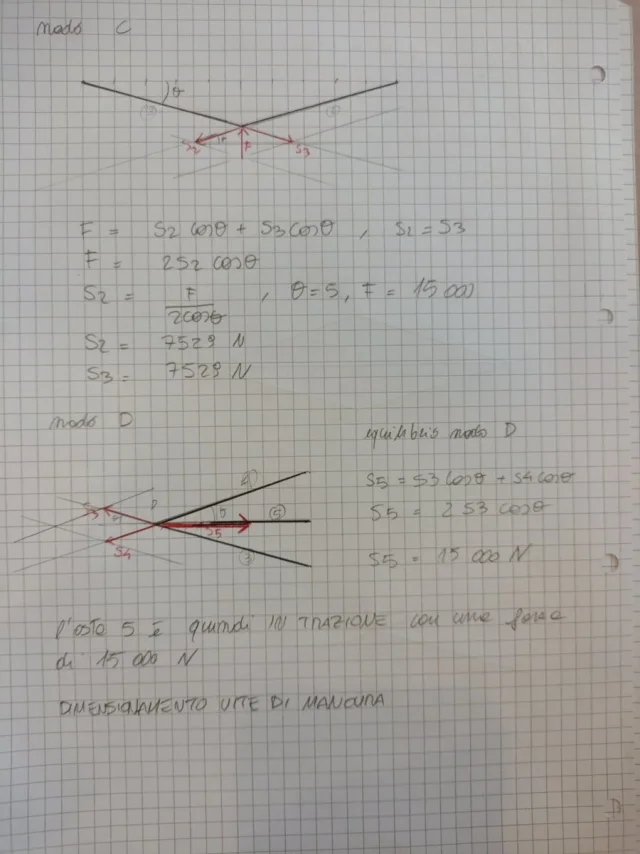 nodo C
θ
S2 F S3
F = S2 cosθ + S3 cosθ , S2 = S3
F = 2S2 cosθ
S2 = F / 2cosθ , θ = 5, F = 15 000
S2 = 7529 N
S3 = 7529 N
nodo D
equilibrio nodo D
S5 = S3 cosθ + S4 cosθ
S5 = 2 S3 cosθ
S5 = 15 000 N
4
S3 D θ 5
S4 S5 3
l'asta 5 è quindi IN TRAZIONE con una forza
di 15 000 N
DIMENSIONAMENTO VITE DI MANOVRA